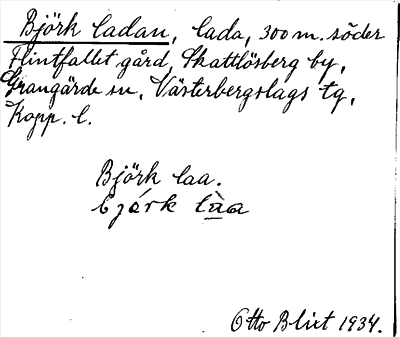 Björk ladan, lada, 300 m. söder
Flintfallet gård, Skattlösberg by,
Grangärde sn, Västerbergslags tg,
Kopp. l.
Björk laa.
bjɵ́rk làa
Otto Blixt 1934.